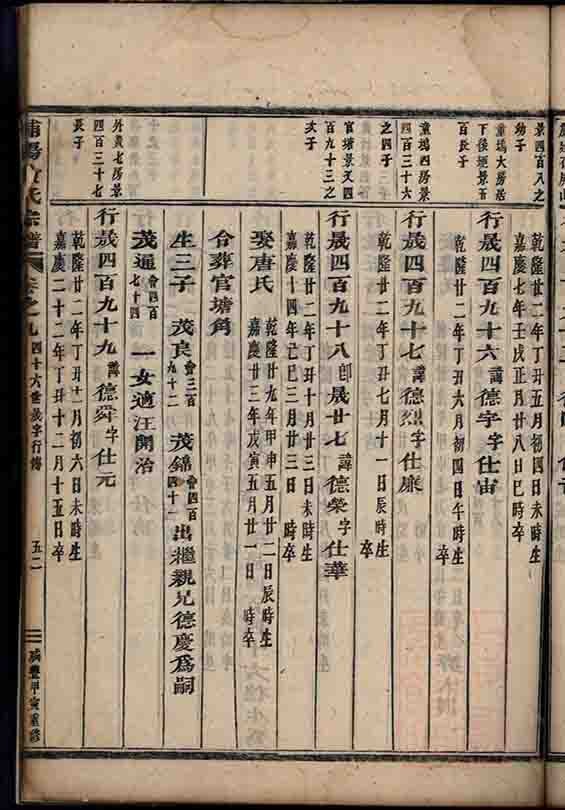 景四百八之
幼子
乾隆廿二年丁丑五月初四日
嘉慶七年壬戌正月廿八日巳時卒
童塢大房居
下後塘景五
百長子
行晟四百九十六 諱德宇字仕宙
乾隆廿二年丁丑六月初四日午時生
卒
童塢四房景
四百三十六
之四子
行晟四百九十七 諱德烈字仕廉
乾隆廿二年丁丑七月十一日辰時生
卒
官塘景又四
百九十三之
次子
行晟四百九十八 即晟廿七 諱德榮字仕華
乾隆廿二年丁丑十月廿三日未時生
嘉慶十四年己巳三月廿三日 時卒
娶唐氏
乾隆廿九年甲申五月廿二日辰時生
嘉慶廿三年戊寅五月廿一日 時卒
合葬官塘角
生三子 茂良 會三百九十二 茂錦 會四百四十一 出繼親兄德慶為嗣
茂通 會四百七十四 一女適汪開治
外黃七房景
四百三十七
長子
行晟四百九十九 諱德舜字仕元
乾隆廿二年丁丑十一月初六日未時生
嘉慶二十二年丁丑十二月十五日卒
浦陽 氏宗譜 卷之九 四十六世晟字行傳 五二 咸豐甲寅重修